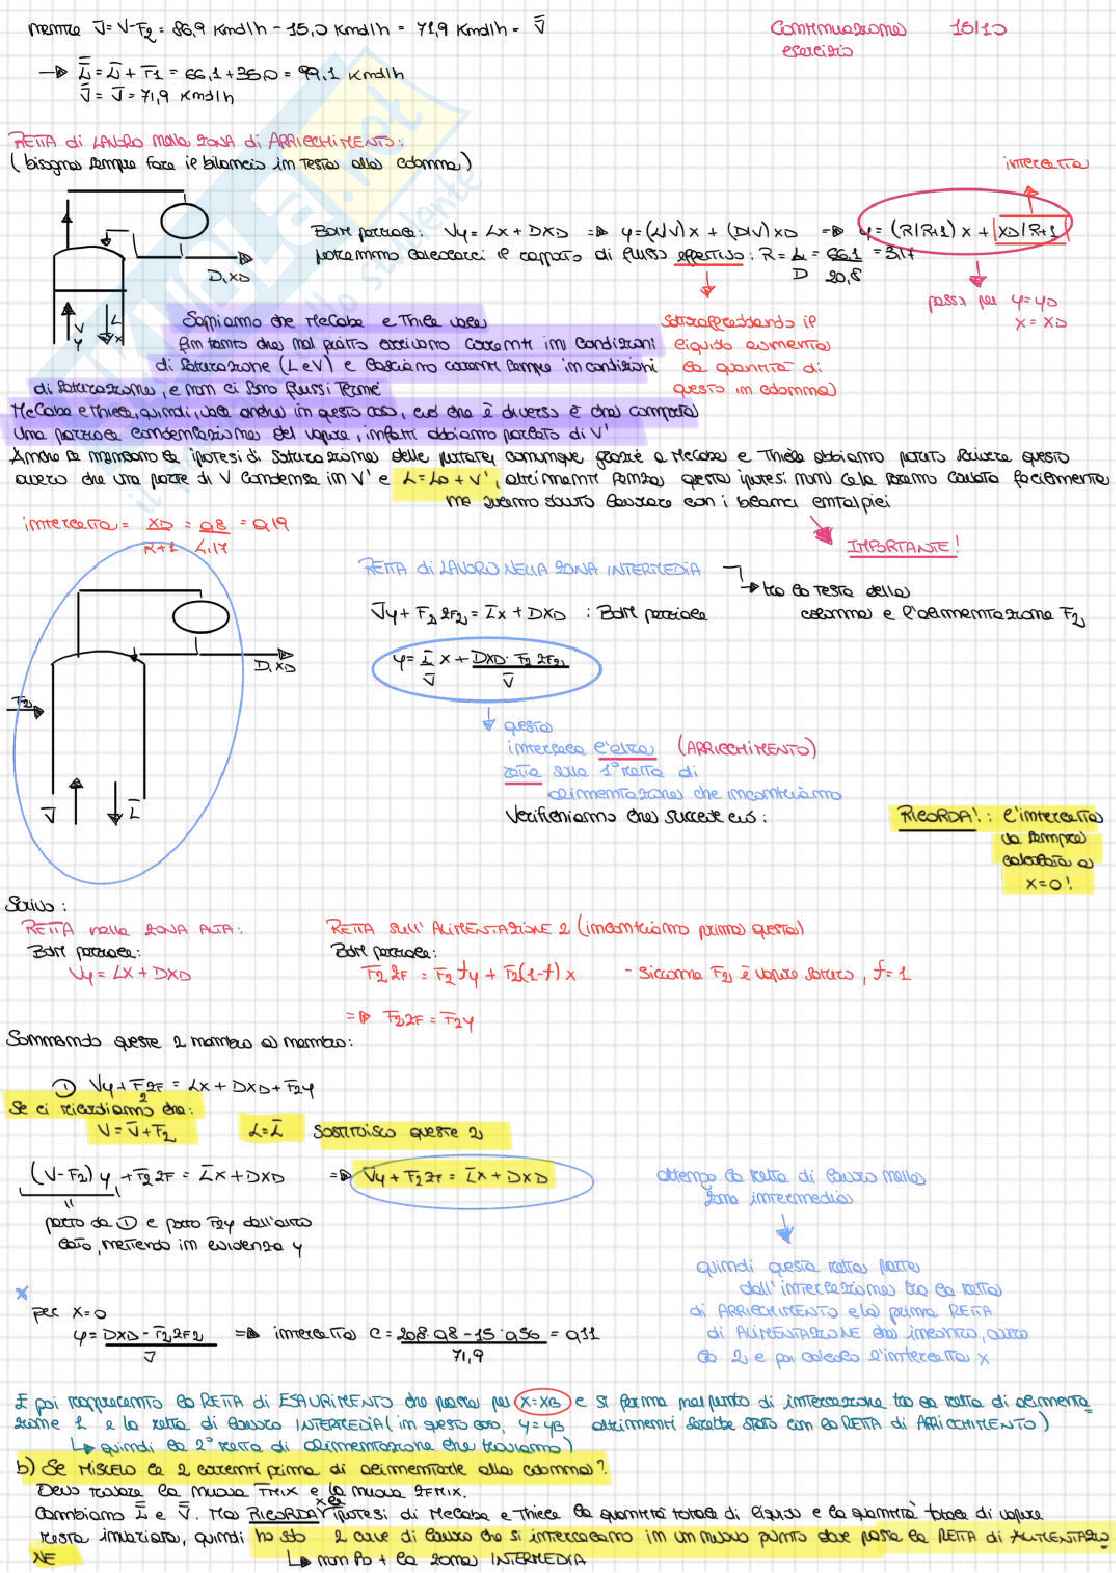 mentre V̄ = V-F2 = 86,9 Kmol/h - 15,0 Kmol/h = 71,9 Kmol/h = V̿
Continuazione 15/10
esercizio
→ L̿ = L̄ + F1 = 66,1 + 35,0 = 99,1 Kmol/h
V̿ = V̄ = 71,9 Kmol/h
RETTA di LAVORO nella ZONA di ARRICCHIMENTO:
(bisogna sempre fare il bilancio in testa alla colonna)
intercetta
BdM parziale: Vy = Lx + DxD => y = (L/V)x + (D/V)xD => y = (R/R+1)x + xD/R+1
potremmo calcolarci il rapporto di flusso effettivo: R = L/D = 66,1/20,8 = 3,17
D, xD
passa per y = yD
x = xD
V
y
L
x
Sappiamo che McCabe e Thiele vale
fin tanto che nel piatto arrivano correnti in condizioni
di saturazione (L e V) e lasciano correnti sempre in condizioni
di saturazione, e non ci sono flussi termici
McCabe e Thiele, quindi, vale anche in questo caso, ciò che è diverso è che comporta
una parziale condensazione del vapore, infatti abbiamo parlato di V'
sottoraffreddando il
liquido aumenta
la quantità di
questo in colonna
Anche se mancano le ipotesi di saturazione delle portate, comunque grazie a McCabe e Thiele abbiamo potuto scrivere questo
ovvero che una parte di V condensa in V' e L = L0 + V', altrimenti senza questa ipotesi non ce la saremo cavata facilmente
ma avremo dovuto lavorare con i bilanci entalpici
IMPORTANTE!
intercetta = xD/R+1 = 0,8/4,17 = 0,19
RETTA di LAVORO NELLA ZONA INTERMEDIA
→ tra la testa della
colonna e l'alimentazione F2
V̄y + F2 zF2 = L̄x + DxD : BdM parziale
D, xD
F2
y = L̄/V̄ x + DxD - F2 zF2/V̄
V̄
L̄
questa
interseca l'altra (ARRICCHIMENTO)
retta sulla 1° retta di
alimentazione che incontriamo
Verifichiamo che succede ciò:
RICORDA!: l'intercetta
va sempre
calcolata a
x=0!
Scrivo:
RETTA nella ZONA ALTA:
BdM parziale:
Vy = Lx + DxD
RETTA sull'ALIMENTAZIONE 2 (incontriamo prima questa)
BdM parziale:
F2 zF = F2 f y + F2(1-f)x - siccome F2 è vapore saturo, f = 1
=> F2 zF = F2 y
Sommando queste 2 membro a membro:
① Vy + F2 zF = Lx + DxD + F2y
Se ci ricordiamo che:
V = V̄ + F2 L = L̄ sostituisco queste 2
(V-F2)y + F2 zF = L̄x + DxD => V̄y + F2 zF = L̄x + DxD
parto da ① e porto F2y dall'altro
lato, mettendo in evidenza y
ottengo la retta di lavoro nella
zona intermedia
quindi questa retta parte
dall'intersezione tra la retta
di ARRICCHIMENTO e la prima RETTA
di ALIMENTAZIONE che incontro, ovvero
la 2 e poi calcolo l'intercetta x
x
per x=0
y = DxD - F2 zF2/V̄ => intercetta C = 20,8·0,8 - 15·0,56/71,9 = 0,11
E poi rappresento la RETTA di ESAURIMENTO che passa per x=xB e si ferma nel punto di intersezione tra la retta di alimenta
zione 1 e la retta di lavoro INTERMEDIA (in questo caso, y=yB altrimenti sarebbe stato con la RETTA di ARRICCHIMENTO)
↳ quindi la 2° retta di alimentazione che troviamo)
b) Se MISCELO le 2 correnti prima di alimentarle alla colonna?
Devo trovare la nuova FMIX e la nuova zFMIX.
Cambiamo L̿ e V̿. Ma RICORDA: x le ipotesi di McCabe e Thiele la quantità totale di liquido e la quantità totale di vapore
resta invariata, quindi ho sto 2 curve di lavoro che si intersecano in un nuovo punto dove passa la RETTA di ALIMENTAZIO
NE
↳ non ho + la zona INTERMEDIA